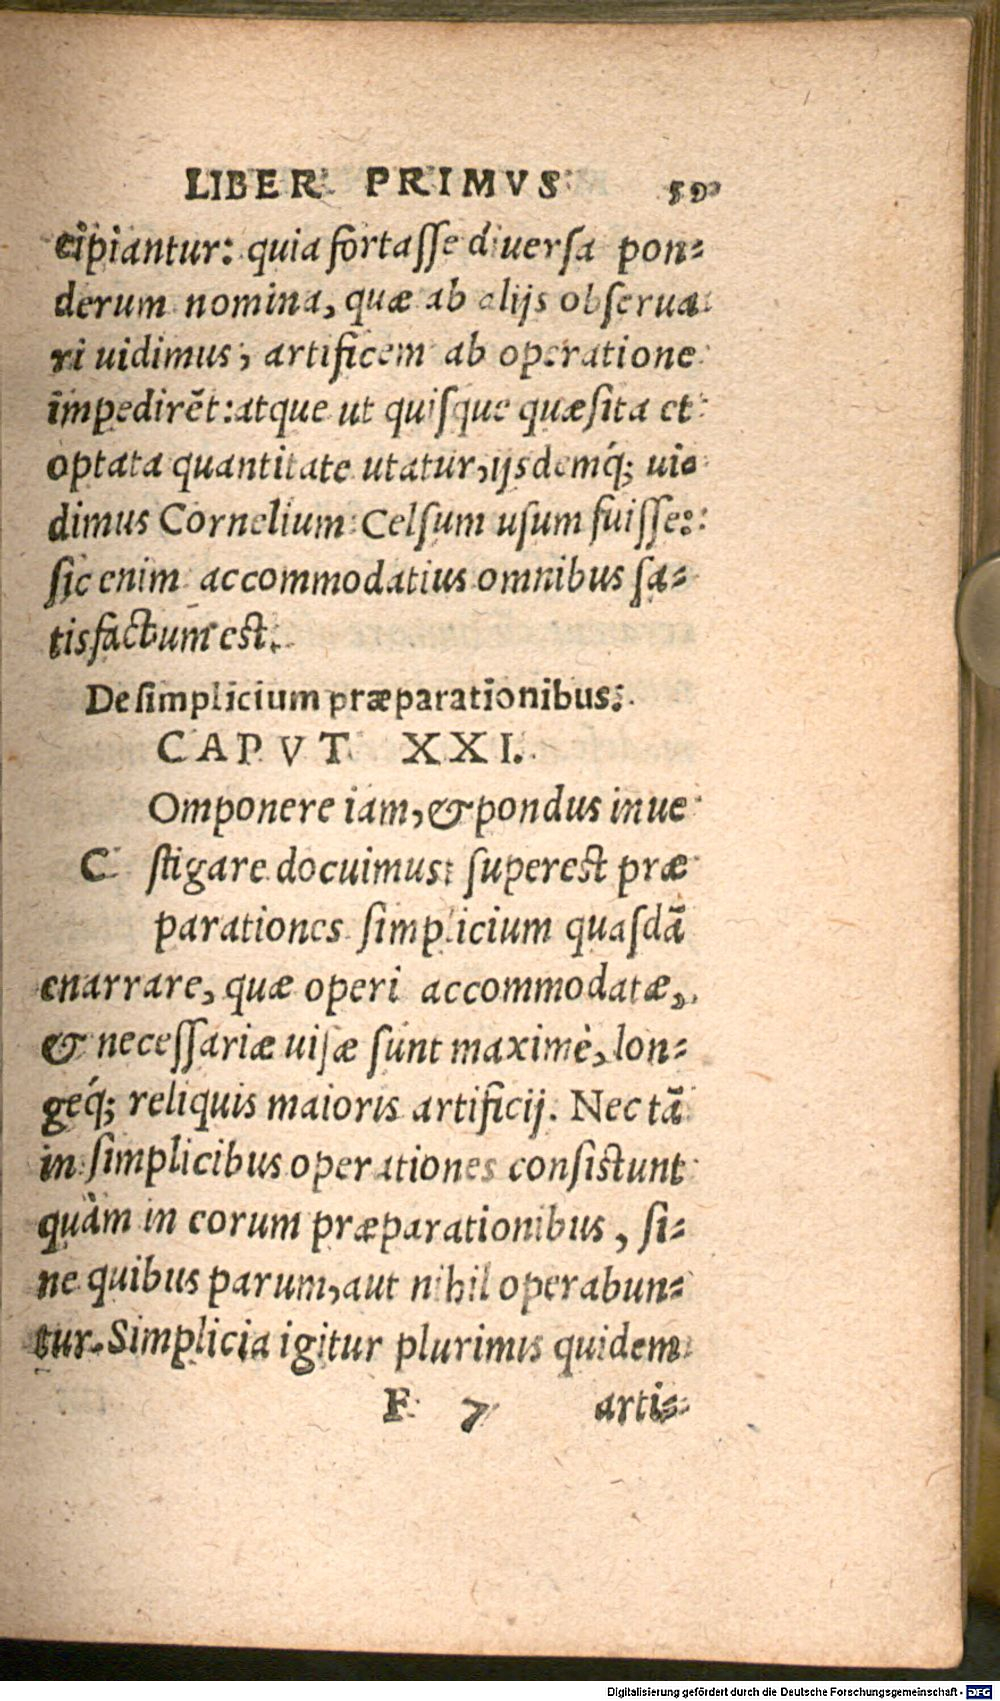 LIBER PRIMVS 59
cipiantur: quia fortasse diuersa pon-
derum nomina, quæ ab alijs obserua
ri uidimus, artificem ab operatione
impedirẽt: atque ut quisque quæsita et
optata quantitate utatur, ijsdemq́; ui-
dimus Cornelium Celsum usum fuisse:
sic enim accommodatius omnibus sa-
tisfactum est.
De simplicium præparationibus.
CAPVT XXI.
Omponere iam, & pondus inue
C stigare docuimus: superest præ
parationes simplicium quasdã
enarrare, quæ operi accommodatæ,
& necessariæ uisæ sunt maximè, lon-
geq́; reliquis maioris artificij. Nec tã
in simplicibus operationes consistunt
quàm in eorum præparationibus, si-
ne quibus parum, aut nihil operabun-
tur. Simplicia igitur plurimis quidem
F 7 arti-
Digitalisierung gefördert durch die Deutsche Forschungsgemeinschaft - DFG